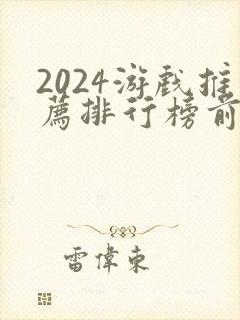 2024游戲推
薦排行榜前
雷偉東